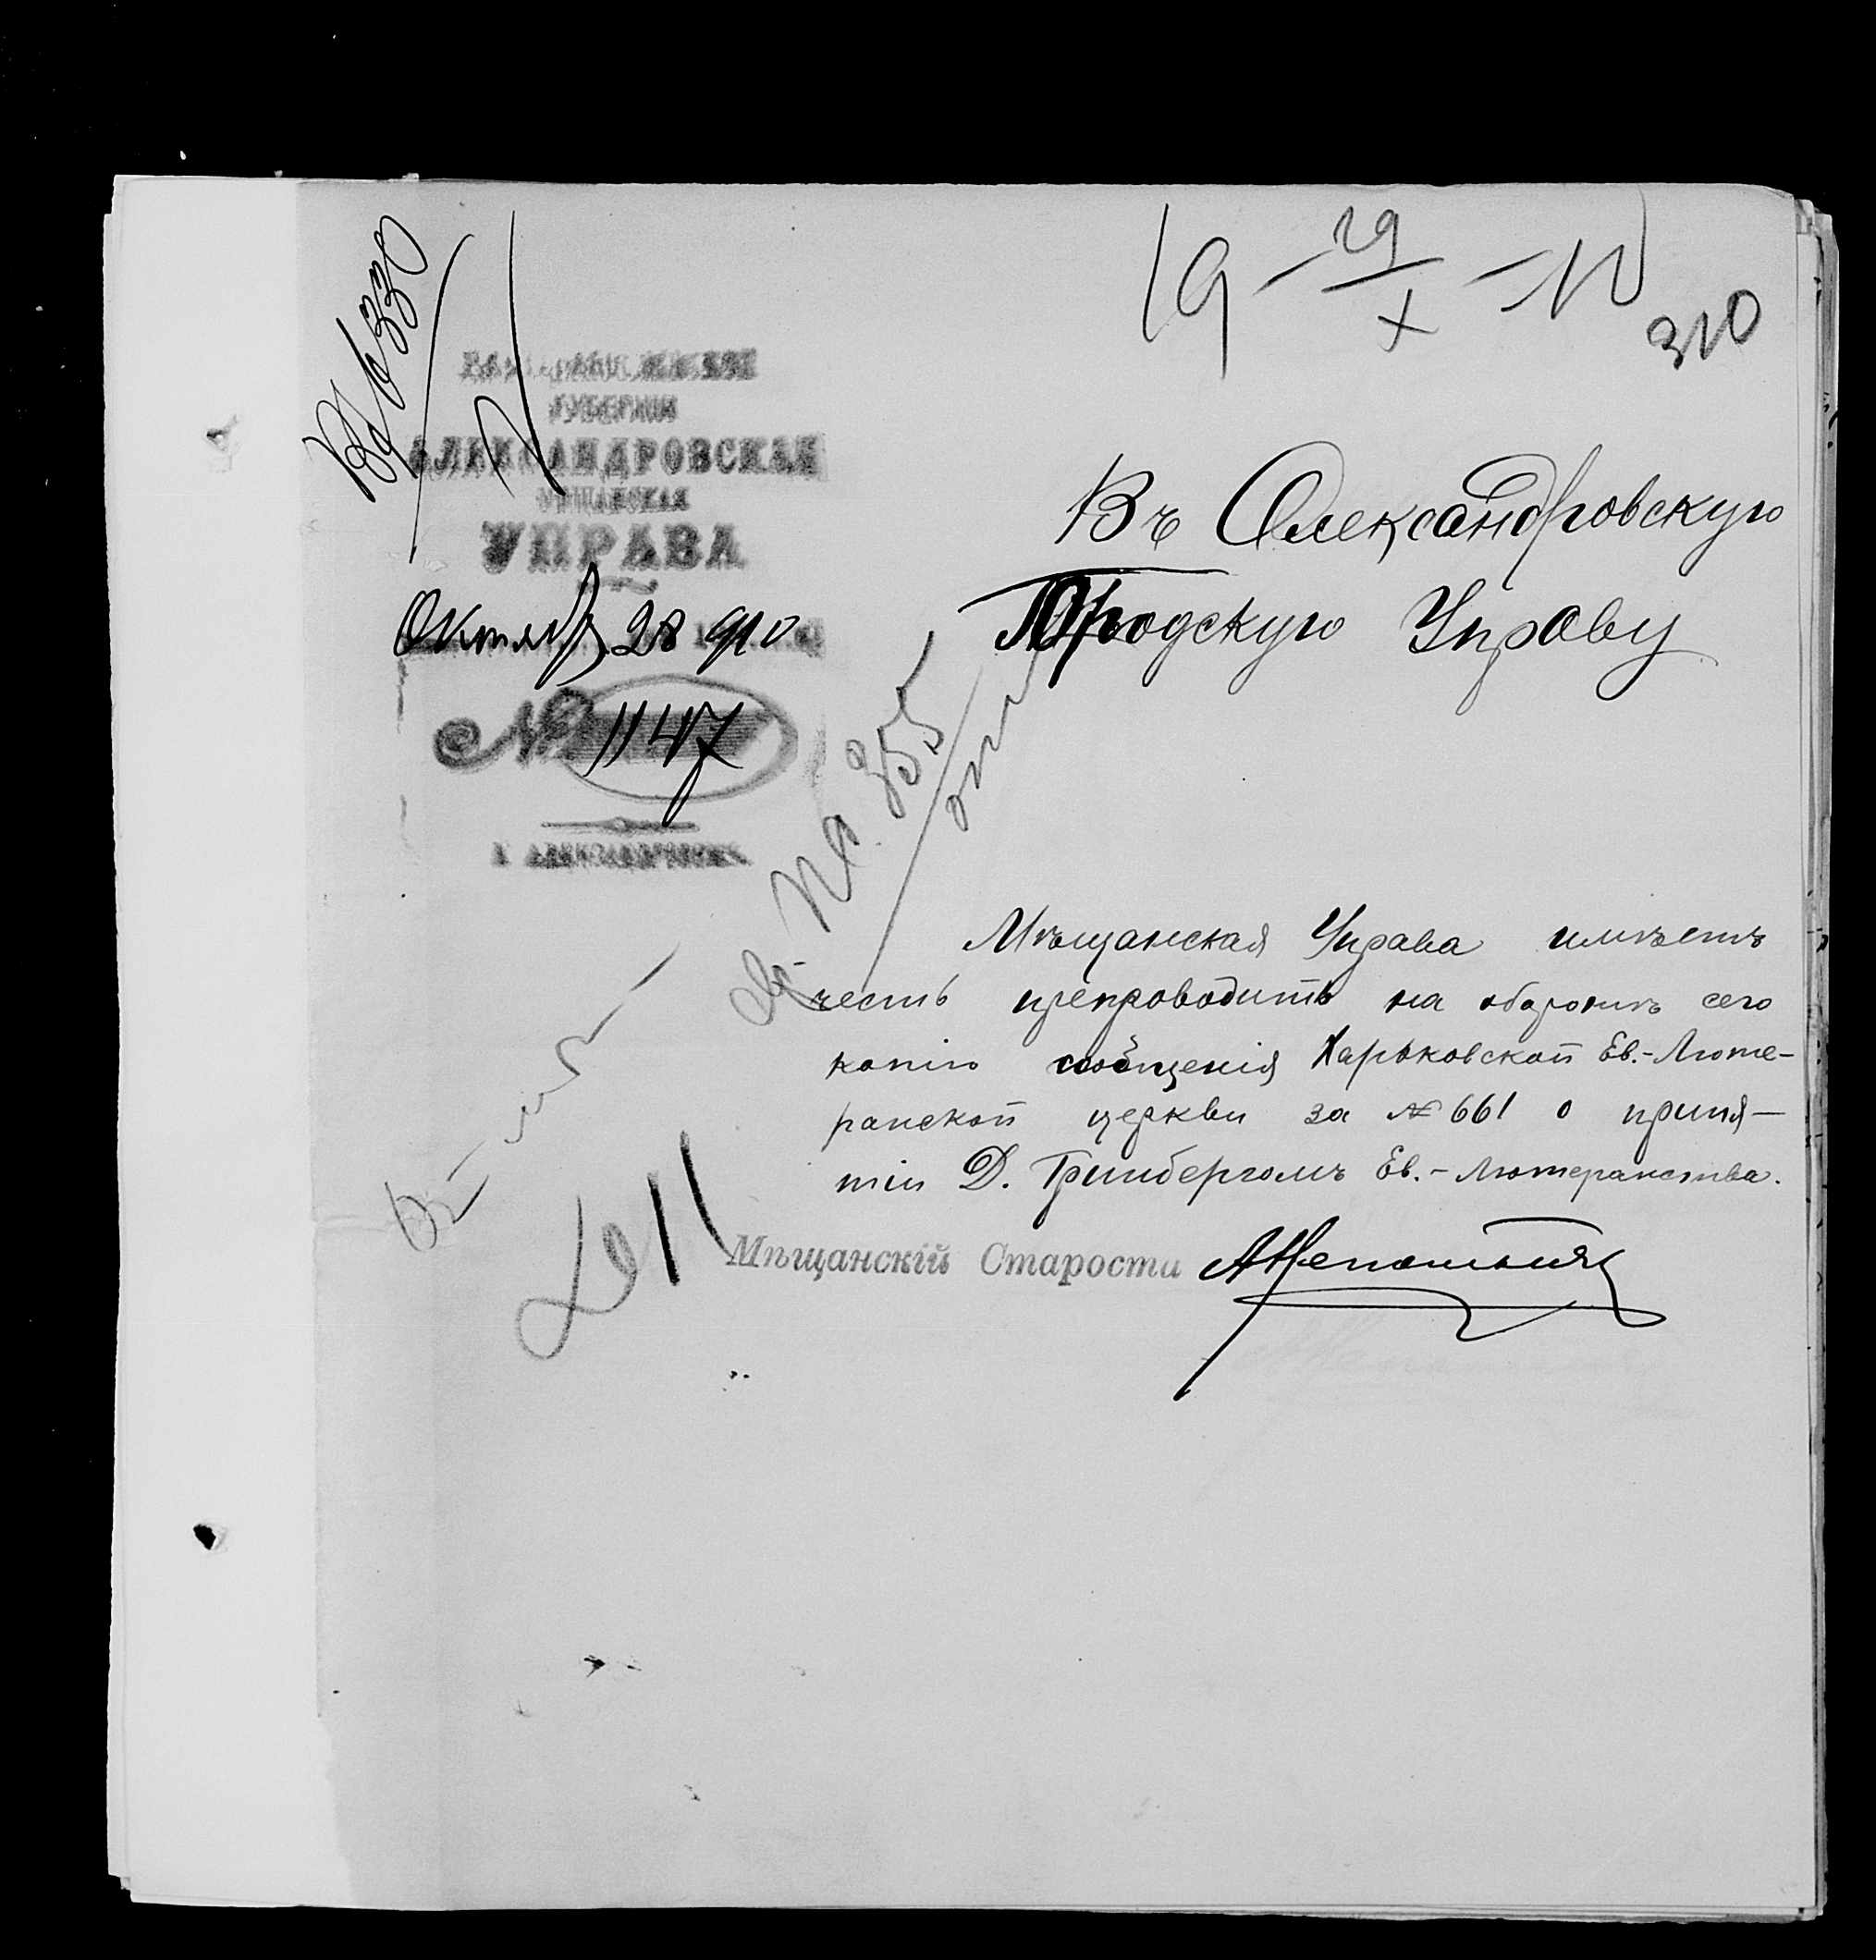 19 – 29/X – 10
310
ГУБЕРНІИ
АЛЕКСАНДРОВСКАЯ
МѢЩАНСКАЯ
УПРАВА
Октябр 28 910
№ 1147
Г. АЛЕКСАНДРОВСКЪ
Въ Александровскую
Городскую Управу
355
Мѣщанская Управа имѣетъ
честь препроводить на оборотѣ сего
копію сообщенія Харьковской Ев.-Люте-
ранской церкви за № 661 о приня-
тіи Д. Гринбергомъ Ев.-Лютеранства.
Мѣщанскій Староста